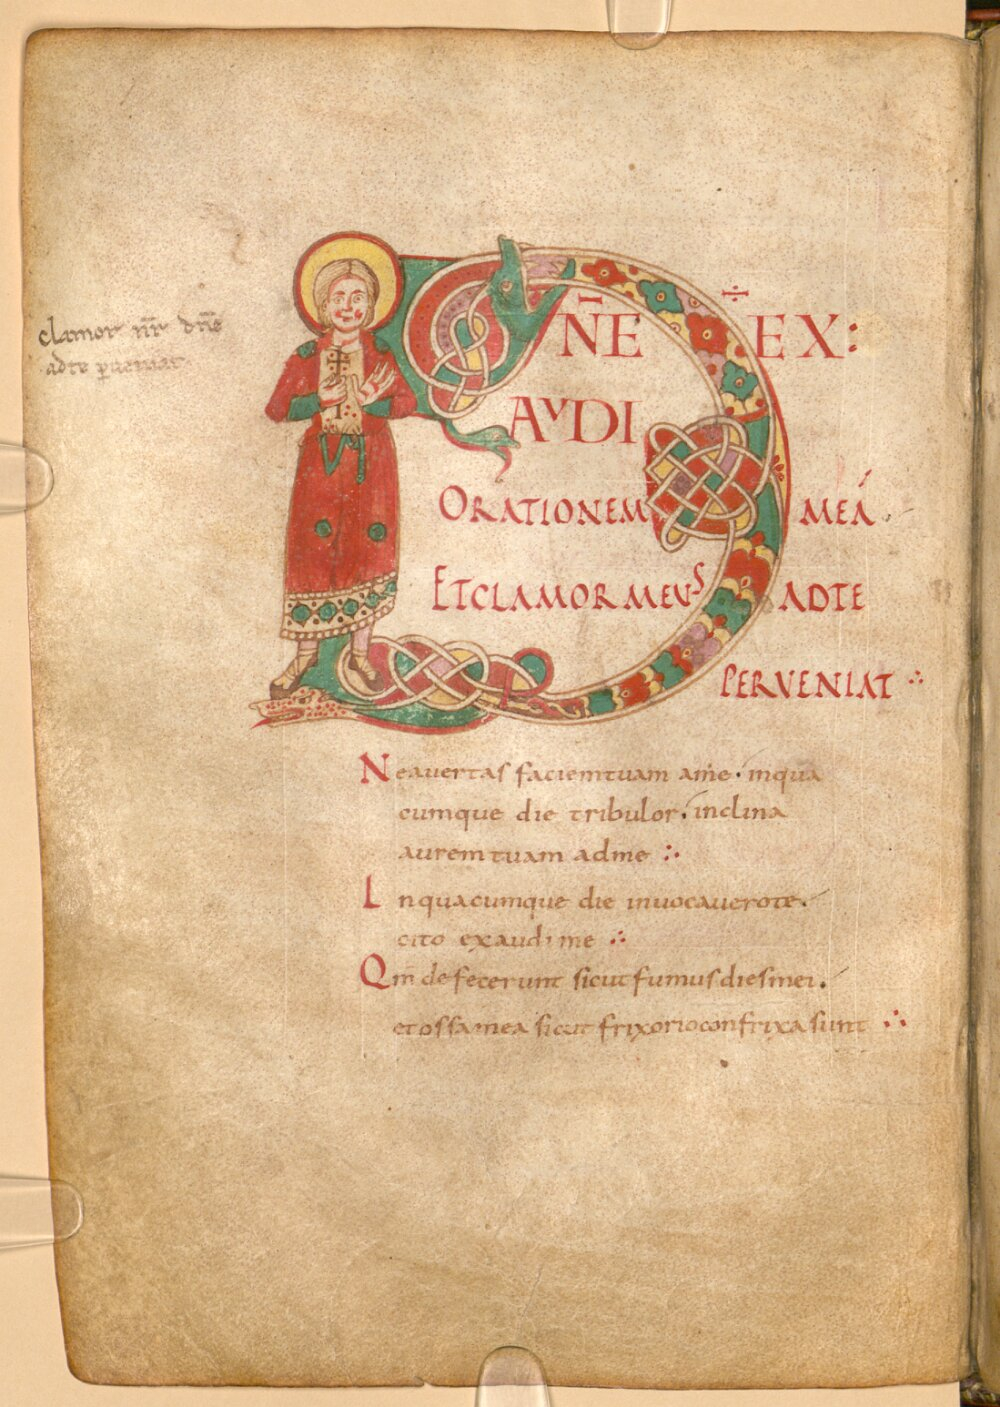 clamor nr̄ dn̄e
ad te ꝑueniat
DN̄E EX:
AVDI
ORATIONEM MEĀ
ET CLAMOR MEVS AD TE
PERVENIAT ∴
Ne avertas faciem tuam a me · in qua
cumque die tribulor · inclina
aurem tuam ad me ∴
In quacumque die invocavero te ·
cito exaudi me ∴
Qm̄ defecerunt sicut fumus dies mei ·
et ossa mea sicut frixorio confrixa sunt ∴